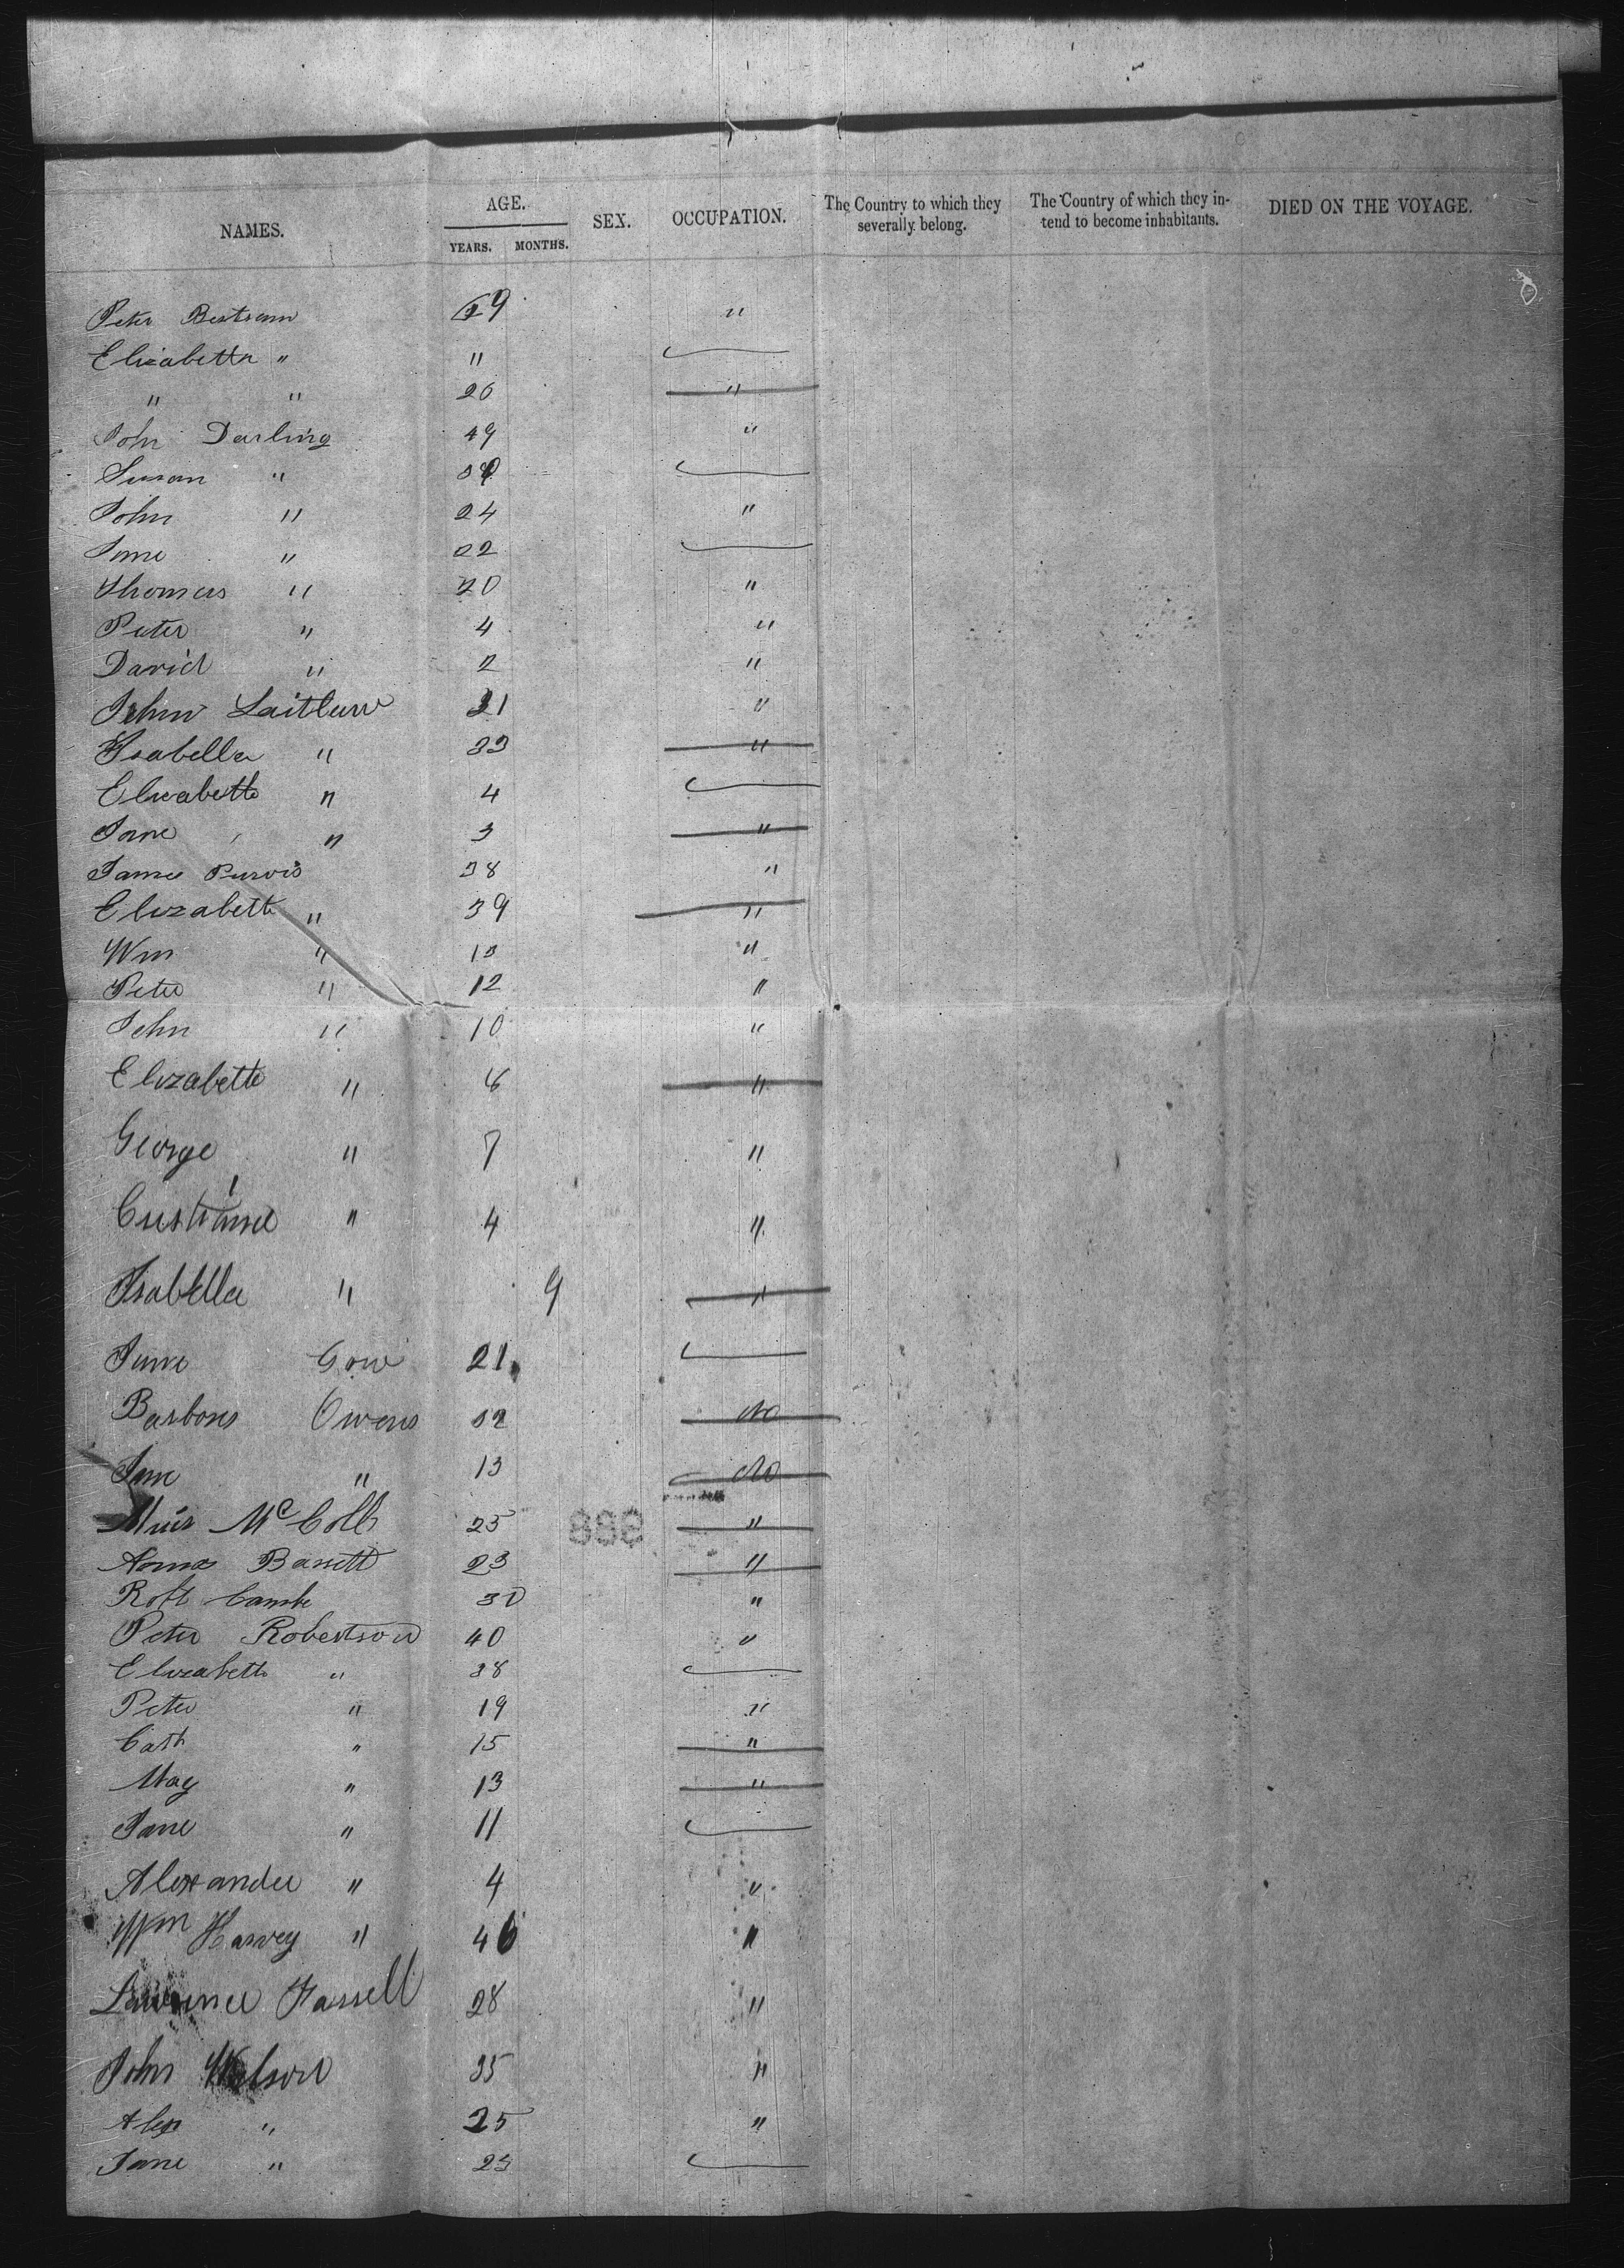 NAMES. AGE. YEARS. MONTHS. SEX. OCCUPATION. The Country to which they severally belong. The Country of which they intend to become inhabitants. DIED ON THE VOYAGE.
Peter Bertram "
Elizabeth " "
" " 26 "
John Darling 49 "
Susan "
John " 24 "
Jane " 22
Thomas " 20 "
Peter " 4 "
David " 2 "
John Laitlaw 31 "
Isabella " 33 "
Elizabeth " 4
Jane " 3 "
James Purvis 38 "
Elizabeth " 39 "
Wm " 13 "
Peter " 12 "
John " 10 "
Elizabeth " "
George " 7 "
" 4 "
Isabella " 9 "
Jane Gow 21
Owens 32 do
Jane " 13 do
McColl 25 "
23 "
Robt 30 "
Peter Robertson 40 "
Elizabeth " 38
Peter " 19 "
Cath " 15 "
May " 13 "
Jane " 11
Alexander " 4 "
Wm Harvey " 46 "
Lawrence Farrell 28 "
John Wilson 35 "
Alex " 25 "
Jane " 23